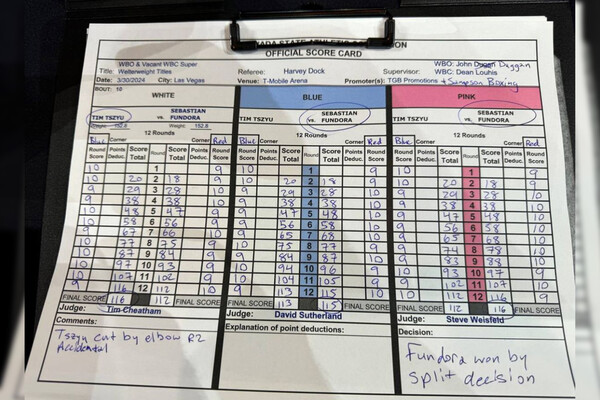 OFFICIAL SCORE CARD
WBO & Vacant WBC Super
Title: Welterweight Titles Referee: Harvey Dock Supervisor: WBO: John Duggan
WBC: Dean Louhis
Date: 3/30/2024 City: Las Vegas Venue: T-Mobile Arena Promoter(s): TGB Promotions + Sampson Boxing
BOUT: 10
WHITE BLUE PINK
TIM TSZYU vs. SEBASTIAN FUNDORA TIM TSZYU vs. SEBASTIAN FUNDORA TIM TSZYU vs. SEBASTIAN FUNDORA
Weight: 152.8 Weight: 152.8
12 Rounds 12 Rounds 12 Rounds
Blue Corner Corner Red Blue Corner Corner Red Blue Corner Corner Red
Round Score Points Deduc. Score Total Round Score Total Points Deduc. Round Score Round Score Points Deduc. Score Total Round Score Total Points Deduc. Round Score Round Score Points Deduc. Score Total Round Score Total Points Deduc. Round Score
10 1 9 10 1 9 10 1 9
10 20 2 18 9 10 20 2 18 9 10 20 2 18 9
9 29 3 28 10 9 29 3 28 10 9 29 3 28 10
9 38 4 38 10 9 38 4 38 10 9 38 4 38 10
10 48 5 47 9 9 47 5 48 10 9 47 5 48 10
10 58 6 56 9 9 56 6 58 10 9 56 6 58 10
9 67 7 66 10 9 65 7 68 10 9 65 7 68 10
10 77 8 75 9 10 75 8 77 9 9 74 8 78 10
10 87 9 84 9 9 84 9 87 10 9 83 9 88 10
10 97 10 93 9 10 94 10 96 9 10 93 10 97 9
10 107 11 102 9 10 104 11 105 9 9 102 11 107 10
9 116 12 112 10 9 113 12 115 10 10 112 12 116 9
FINAL SCORE 116 112 FINAL SCORE FINAL SCORE 113 115 FINAL SCORE FINAL SCORE 112 116 FINAL SCORE
Judge: Tim Cheatham Judge: David Sutherland Judge: Steve Weisfeld
Comments: Explanation of point deductions: Decision:
Tszyu cut by elbow R2
Accidental
Fundora won by
split decision